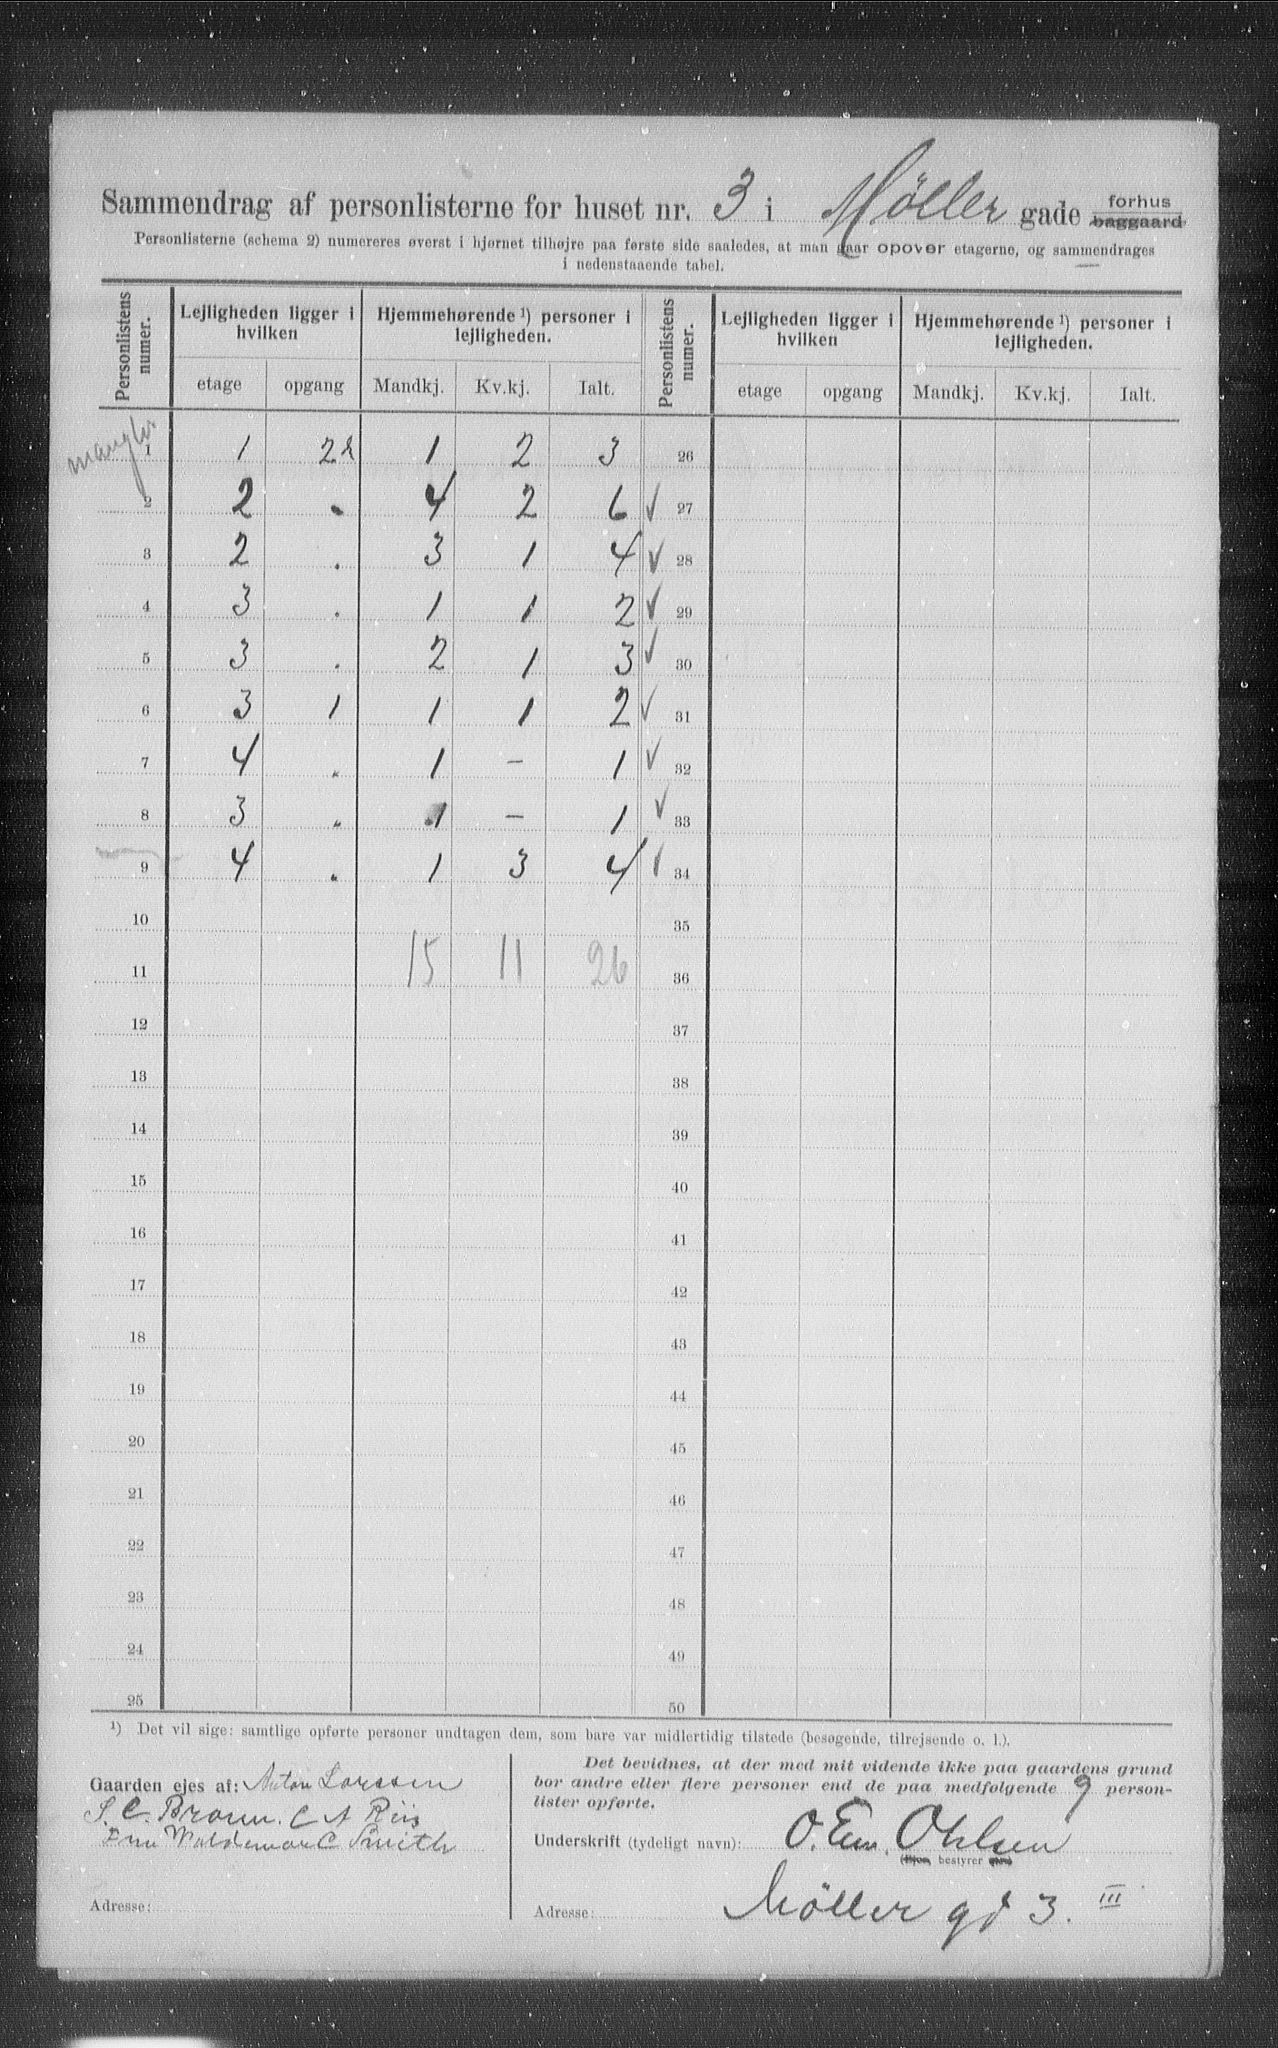 Sammendrag af personlisterne for huset nr. 3 i Møller gade forhus baggaard
Personlisterne (schema 2) numereres øverst i hjørnet tilhøjre paa første side saaledes, at man gaar opover etagerne, og sammendrages
i nedenstaaende tabel.
Personlistens numer. Lejligheden ligger i hvilken Hjemmehørende ¹) personer i lejligheden. Personlistens numer. Lejligheden ligger i hvilken Hjemmehørende ¹) personer i lejligheden.
etage opgang Mandkj. Kv.kj. Ialt. etage opgang Mandkj. Kv.kj. Ialt.
mangler
1 1 2 1 2 3 26
2 2 . 4 2 6 ✓ 27
3 2 . 3 1 4 ✓ 28
4 3 . 1 1 2 ✓ 29
5 3 . 2 1 3 ✓ 30
6 3 1 1 1 2 ✓ 31
7 4 . 1 – 1 ✓ 32
8 3 . 1 – 1 ✓ 33
9 4 . 1 3 4 ✓ 34
10 35
11 15 11 26 36
12 37
13 38
14 39
15 40
16 41
17 42
18 43
19 44
20 45
21 46
22 47
23 48
24 49
25 50
¹) Det vil sige: samtlige opførte personer undtagen dem, som bare var midlertidig tilstede (besøgende, tilrejsende o. l.).
Gaarden ejes af: Anton Larssen
S. C. Brown. C A Riis
Waldemar C Smith
Adresse:
Det bevidnes, at der med mit vidende ikke paa gaardens grund
bor andre eller flere personer end de paa medfølgende 9 person-
lister opførte.
Underskrift (tydeligt navn): O. Em. Ohlsen
(Ejer, bestyrer
Adresse: Møller gd 3. III